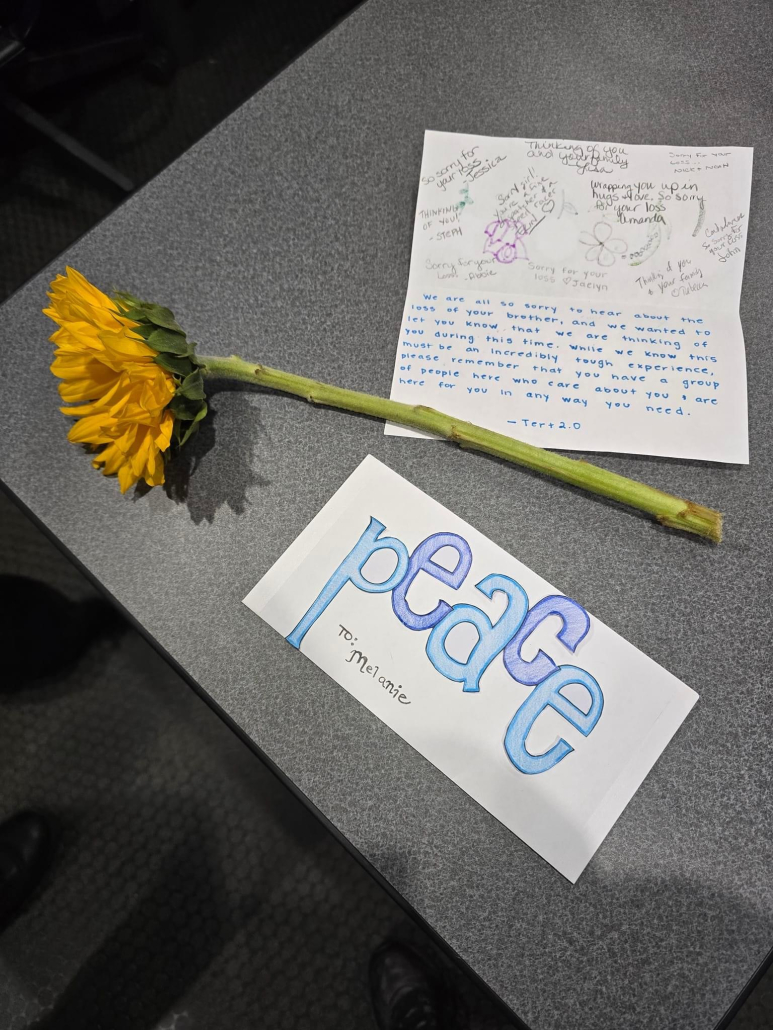 Thinking of you
and your family
Lisa
So sorry for
your loss.
-Jessica
Sorry For your
loss...
NICK + NOAH
wrapping you up in
hugs + love. So sorry
for your loss
Amanda
THINKING
OF YOU!
- STEPH
Sorry girl!
Condolences
So sorry for
your loss
Sorry for your
loss
Sorry For your
loss ♡ Jaclyn
Thinking of you
+ your family
We are all so sorry to hear about the
loss of your brother, and we wanted to
let you know that we are thinking of
you during this time. While we know this
must be an incredibly tough experience,
please remember that you have a group
of people here who care about you & are
here for you in any way you need.
- Tert 2.0
peace
To:
Melanie